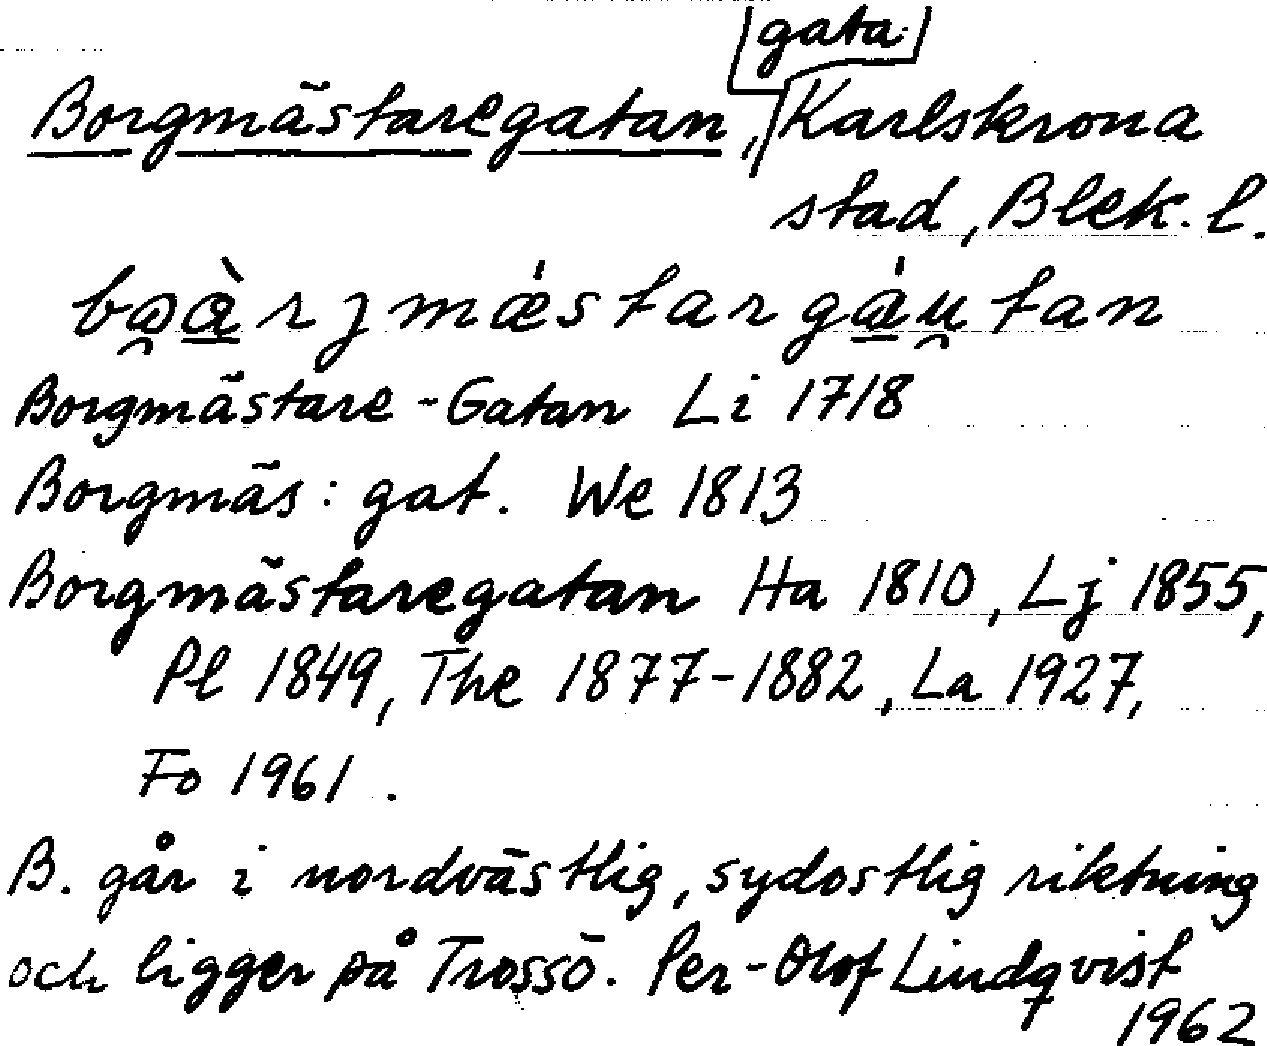 gata
Borgmästaregatan, Karlskrona
stad, Blek. l.
Borgmästare-Gatan Li 1718
Borgmäs: gat. We 1813
Borgmästaregatan Ha 1810, Lj 1855,
Pl 1849, The 1877-1882, La 1927,
Fo 1961.
B. går i nordvästlig, sydostlig riktning
och ligger på Trossö. Per-Olof Lindqvist
1962